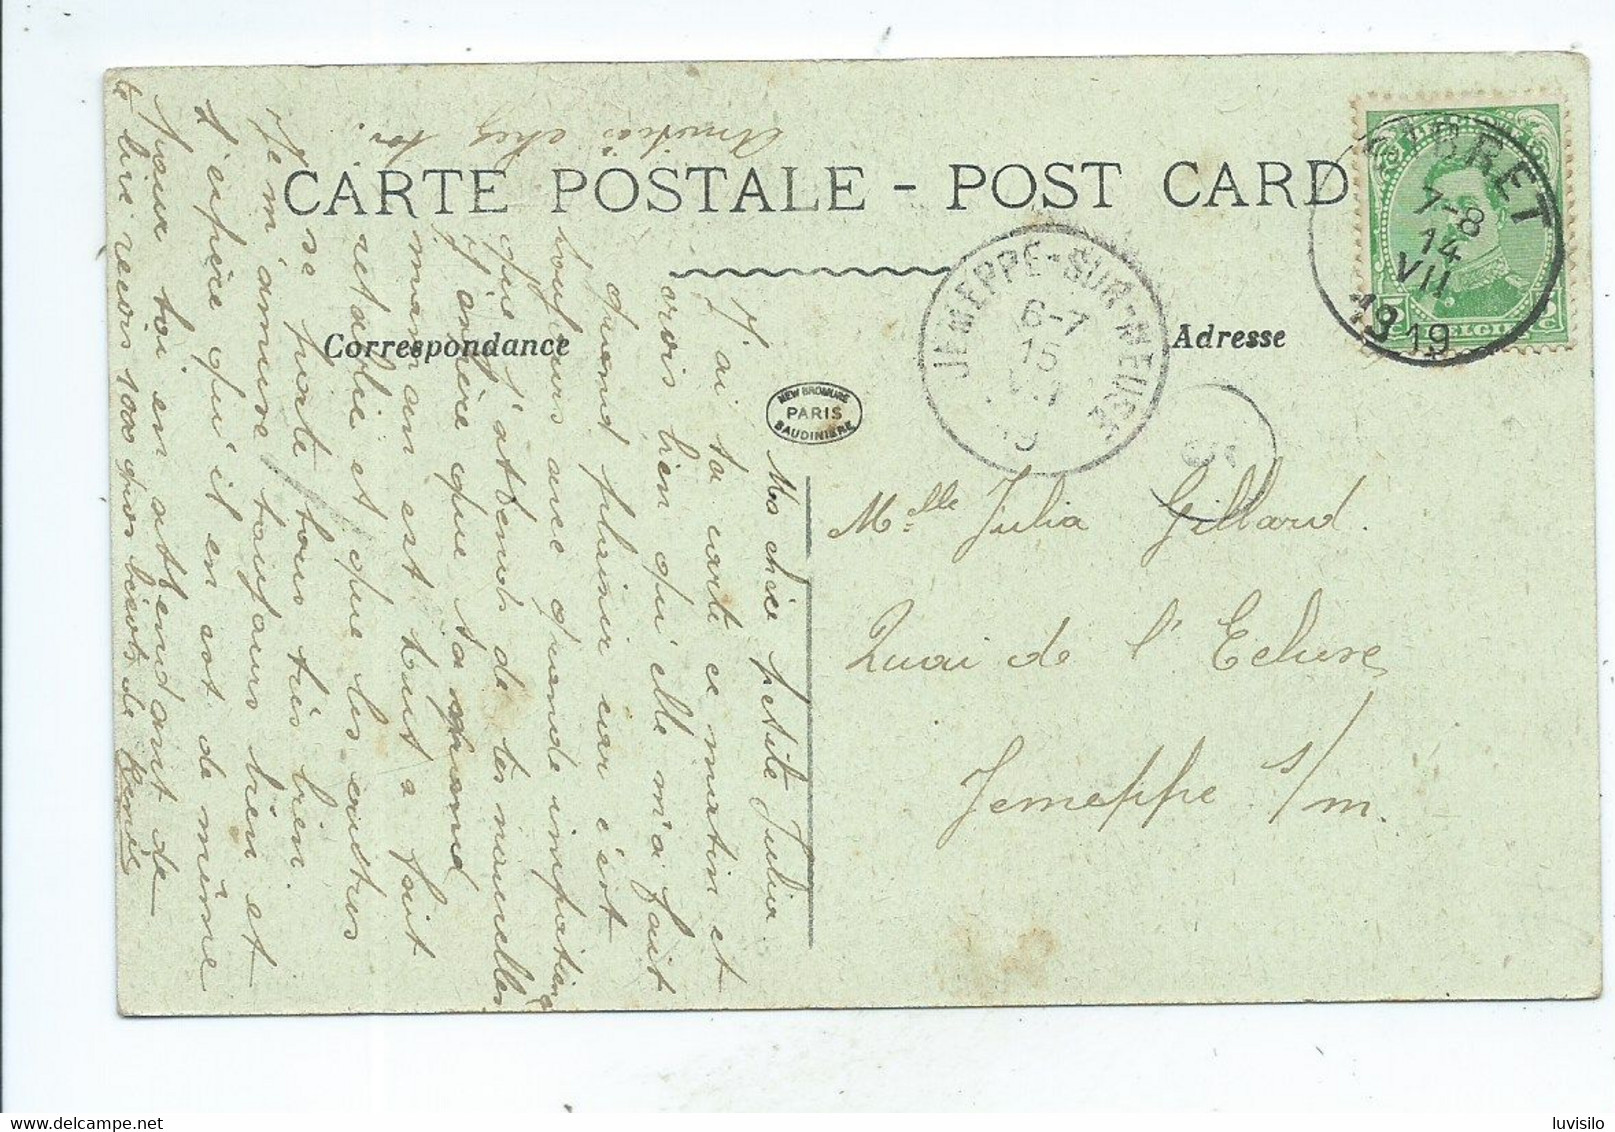 CARTE POSTALE - POST CARD
Correspondance
Adresse
NEW BROMURE
PARIS
BAUDINIERE
JEMEPPE-SUR-MEUSE
6-7
15
VII
19
BRET
7-8
14
VII
1919
BELGIE
Melle Julia Gillard.
Quai de l'Ecluse,
Jemeppe s/m.
Ma chère petite Julia
J'ai ta carte ce matin et
crois bien qu'elle m'a fait
grand plaisir car c'est
toujours avec grande impatience
que j'attends de tes nouvelles
J'espère que ta grand
maman est tout a fait
rétablie et que les autres
se porte tous très bien.
Je m'amuse toujours bien et
j'espère qu'il en est de même
pour toi en attendant de
te lire reçois 1000 gros baisers de Renée
Amitiés chez toi.
luvisilo